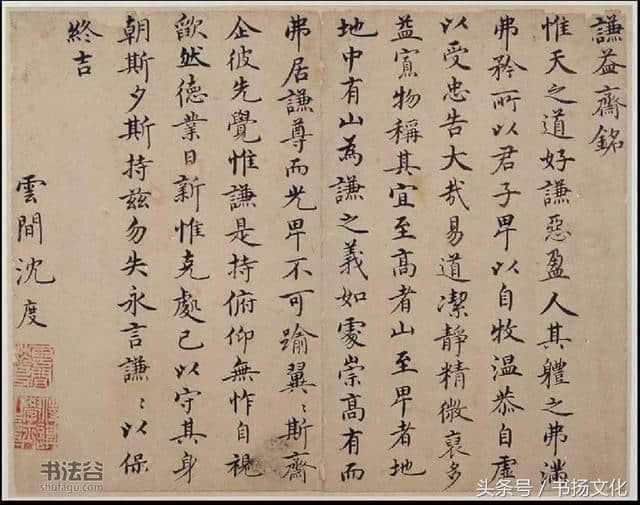 謙益齋銘
惟天之道好謙惡盈人其體之弗滿
弗矜所以君子卑以自牧溫恭自虛
以受忠告大哉易道潔靜精微裒多
益寡物稱其宜至高者山至卑者地
地中有山為謙之義如處崇高有而
弗居謙尊而光卑不可踰翼〻斯齋
企彼先覺惟謙是持俯仰無怍自視
歉然德業日新惟克處己以守其身
朝斯夕斯持茲勿失永言謙〻以保
終吉
雲間沈度
书法谷
shufagu.com
头条号 / 书扬文化